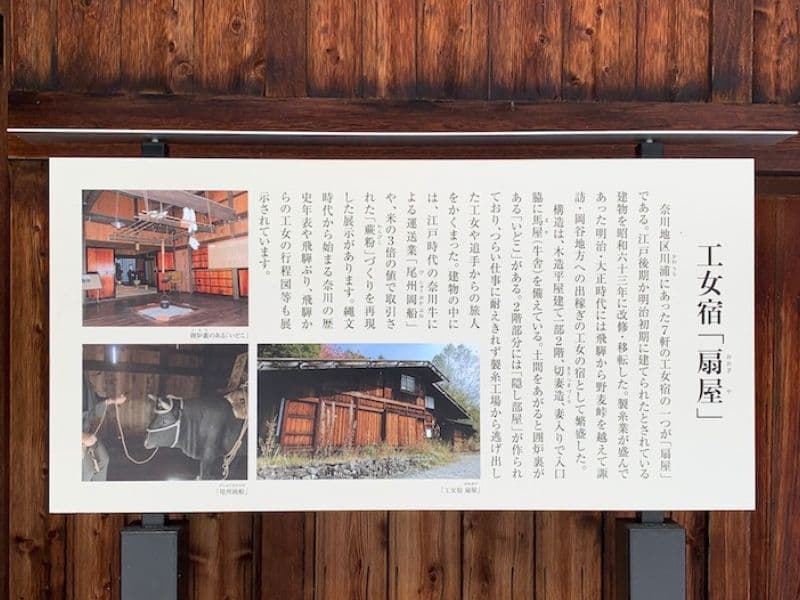 工女宿「扇屋」
奈川地区川浦にあった7軒の工女宿の一つが「扇屋」
である。江戸後期か明治初期に建てられたとされている
建物を昭和六十三年に改修・移転した。製糸業が盛んで
あった明治・大正時代には飛騨から野麦峠を越えて諏
訪・岡谷地方への出稼ぎの工女の宿として繁盛した。
構造は、木造平屋建て一部2階、切妻造、妻入りで入口
脇に馬屋(牛舎)を備えている。土間をあがると囲炉裏が
ある「いどこ」がある。2階部分には「隠し部屋」が作られ
ており、つらい仕事に耐えきれず製糸工場から逃げ出し
た工女や追手からの旅人
をかくまった。建物の中に
は、江戸時代の奈川牛に
よる運送業「尾州岡船」
や、米の3倍の値で取引さ
れた「蕨粉」づくりを再現
した展示があります。縄文
時代から始まる奈川の歴
史年表や飛騨ぶり、飛騨か
らの工女の行程図等も展
示されています。
囲炉裏のある「いどこ」
「尾州岡船」
「工女宿 扇屋」